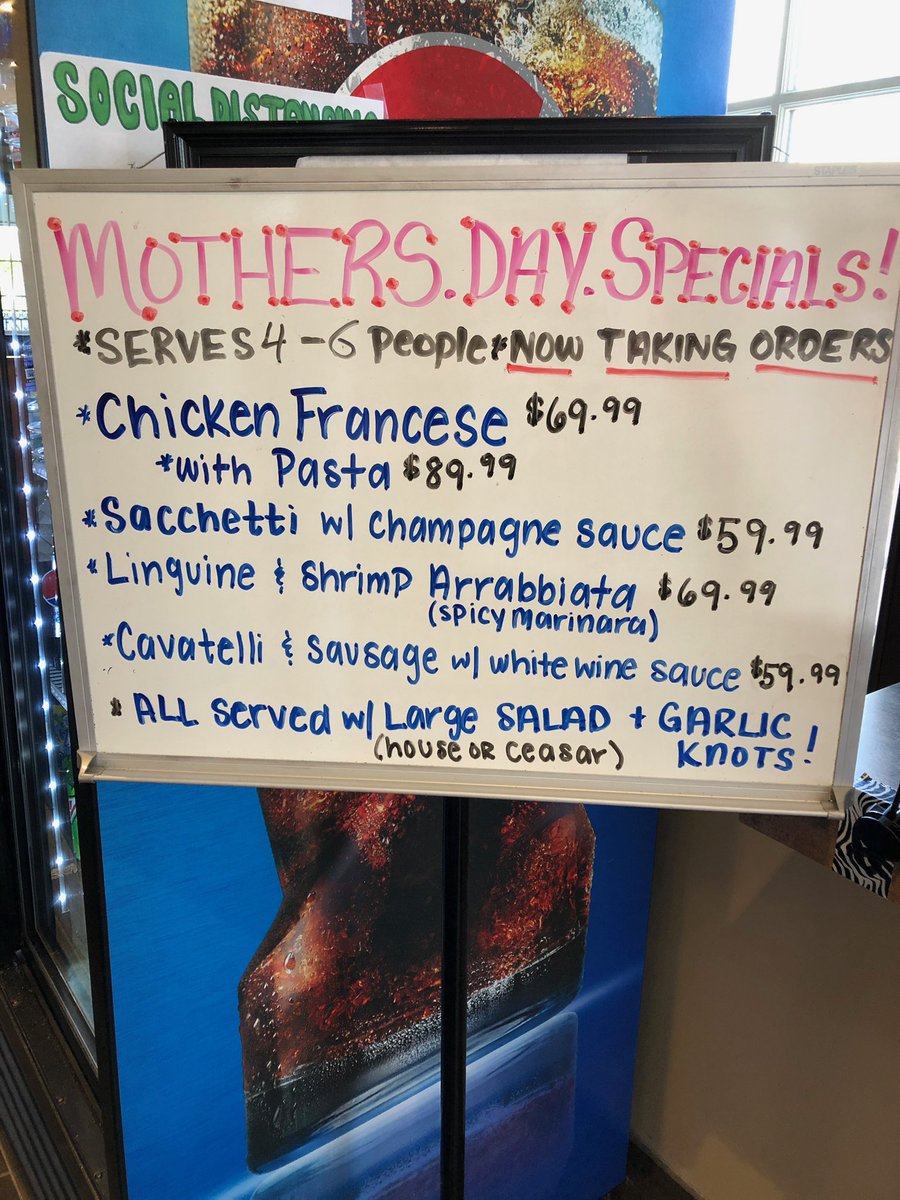 SOCIAL DISTANCING
STAPLES
MOTHERS.DAY.SPECIALS!
*SERVES 4-6 People* NOW TAKING ORDERS
*Chicken Francese $69.99
*with Pasta $89.99
*Sacchetti w/ champagne sauce $59.99
*Linguine & shrimp Arrabbiata $69.99
(spicy marinara)
*Cavatelli & sausage w/ white wine sauce $59.99
* ALL served w/ Large SALAD + GARLIC KNOTS!
(house or ceasar)